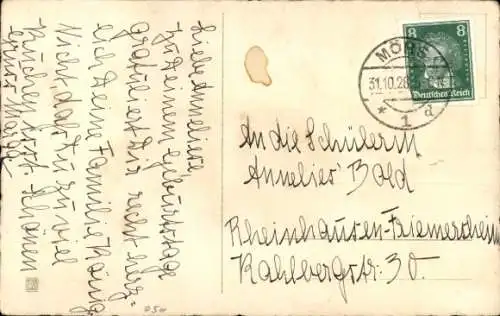 Liebe Anneliese
Zu Deinem Geburtstage
gratuliert Dir recht herz-
lich Deine Familie König
Nicht, daß Du zu viel
Kuchen ißt. Schönen
Gruß
8
8
Deutsches Reich
MÖRS
31.10.28
* 1 d
An die Schülerin
Annelies' Bald
Rheinhausen-Friemersheim
Kahlbergstr. 30.